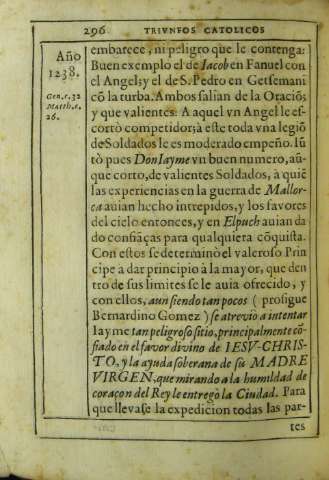 296 TRIVNFOS CATOLICOS
Año
1238.
Gen.c.32
Matth.c.
26.
embarece, ni peligro que le contenga:
Buen exemplo el de Iacob en Fanuel con
el Angel; y el de S. Pedro en Getsemani
cõ la turba. Ambos salian de la Oraciõ;
y que valientes: A aquel vn Angel le es-
corto competidor; à este toda vna legiõ
de Soldados le es moderado empeño. Iũ
tò pues Don Iayme vn buen numero, aũ-
que corto, de valientes Soldados, à quiẽ
las experiencias en la guerra de Mallor-
ca auian hecho intrepidos, y los favores
del cielo entonces, y en Elpuch auian da
do confiãças para qualquiera cõquista.
Con estos se determinò el valeroso Prin
cipe a dar principio à la mayor, que den
tro de sus limites se le auia ofrecido, y
con ellos, aun siendo tan pocos ( prosigue
Bernardino Gomez ) se atrevio a intentar
Iayme tan peligroso sitio, principalmente cõ-
fiado en el favor divino de IESV-CHRIS-
TO, y la ayuda soberana de su MADRE
VIRGEN, que mirando a la humildad de
coraçon del Rey le entregò la Ciudad. Para
que llevase la expedicion todas las par-
tes